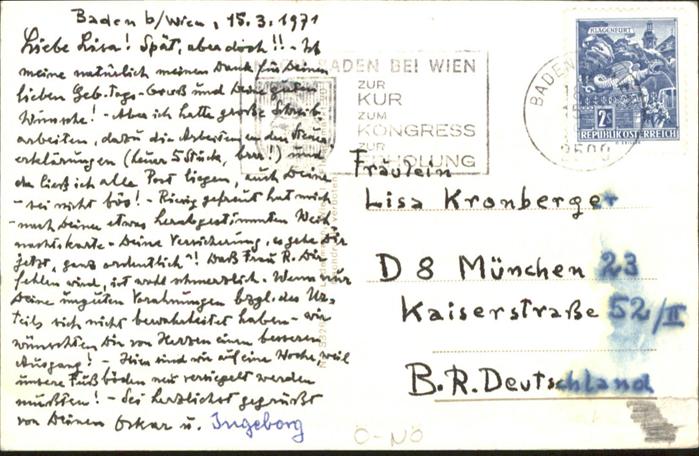 Baden b/Wien, 15.3.1971
Liebe Lisa! Spät, aber doch!! - Ich
meine natürlich meinen Dank für Deinen
lieben Geb.tags-Gruß und Deine guten
Wünsche! - Aber ich hatte große Schreib-
arbeiten, dazu die Arbeiten an den Steuer-
erklärungen (heuer 5 Stück, brr!) und
da ließ ich alle Post liegen, auch Deine
- sei nicht bös! - Riesig gefreut hat mich
- nach Deiner etwas herabgestimmten Weih-
nachtskarte - Deine Versicherung, es gehe Dir
jetzt "ganz ordentlich"! Daß Frau R. Dir
fehlen wird, ist wohl schmerzlich. Wenn nur
Deine unguten Vorahnungen bzgl. des Ur-
teils sich nicht bewahrheitet haben - wir
wünschten Dir von Herzen einen besseren
Ausgang! - Hier sind wir auf eine Woche, weil
unsere Fußböden neu versiegelt werden
mußten! - Sei herzlichst gegrüßt
von Deinen Oskar u. Ingeborg
BADEN BEI WIEN
ZUR
KUR
ZUM
KONGRESS
ZUR
ERHOLUNG
BADEN
2500
KLAGENFURT
2S
REPUBLIK ÖSTERREICH
Fräulein
Lisa Kronberger
D 8 München 23
Kaiserstraße 52/II
B.R.Deutschland
O-NÖ